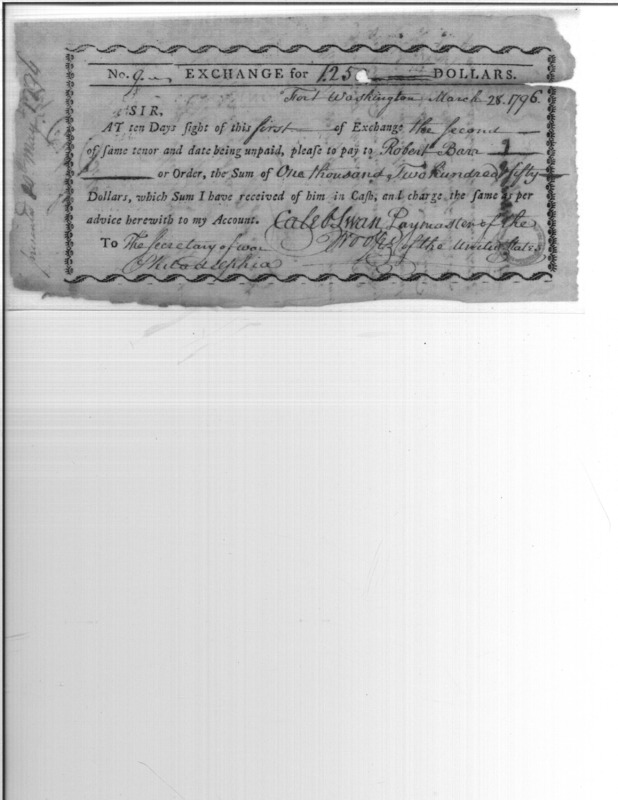 No. 9 EXCHANGE for 1250 DOLLARS.
Fort Washington March 28. 1796.
SIR,
AT ten Days ſight of this first of Exchange the second
of ſame tenor and date being unpaid, pleaſe to pay to Robert Barr
or Order, the Sum of One thousand Two hundred & fifty
Dollars, which Sum I have received of him in Caſh, and charge the ſame as per
advice herewith to my Account. Caleb Swan Paymaster of the
Troops of the United States
To The Secretary of war
Philadelphia
May